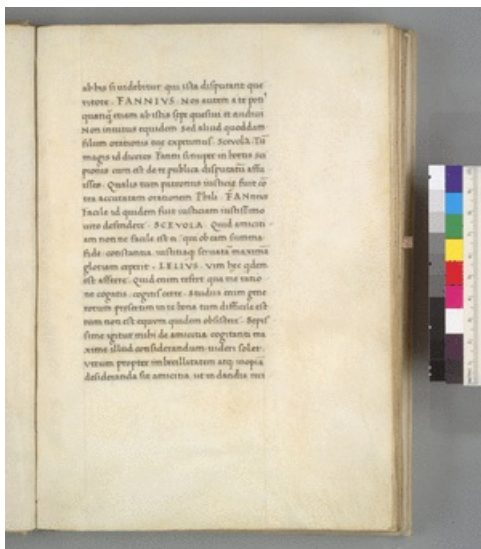 ab his si uidebitur qui ista disputant que
ritote · FANNIVS · Nos autem a te poti᾽
quanq̄ etiam ab istis sepe quesiui et audiui
Non inuitus equidem sed aliud quoddam
filum orationis tue expetimus · Sceuola · Tū
magis id diceres Fanni si nuper in hortis sci
pionis cum est de re publica disputatū affu
isses · Qualis tum patronus iusticię fuit cō
tra accuratam orationem Phili · FANnius
Facile id quidem fuit iusticiam iustissimo
uiro defendere · SCEVOLA · Quid amiciti
am non ne facile est ei qui ob eam summa
fide constantia iustitiaq; seruatā maximā
gloriam ceperit · LELIVS · Vim hęc qdem
est afferre · Quid enim refert qua me ratio
ne cogatis · cogitis certe · Studiis enim gene
rorum presertim in re bona tum difficile est
tum non est equum quidem obsistere · Sepis
sime igitur mihi de amicitia cogitanti ma
xime illud considerandum uideri solet ·
Vtrum propter imbecillitatem atq; inopiā
desideranda sit amicitia ut in dandis reci